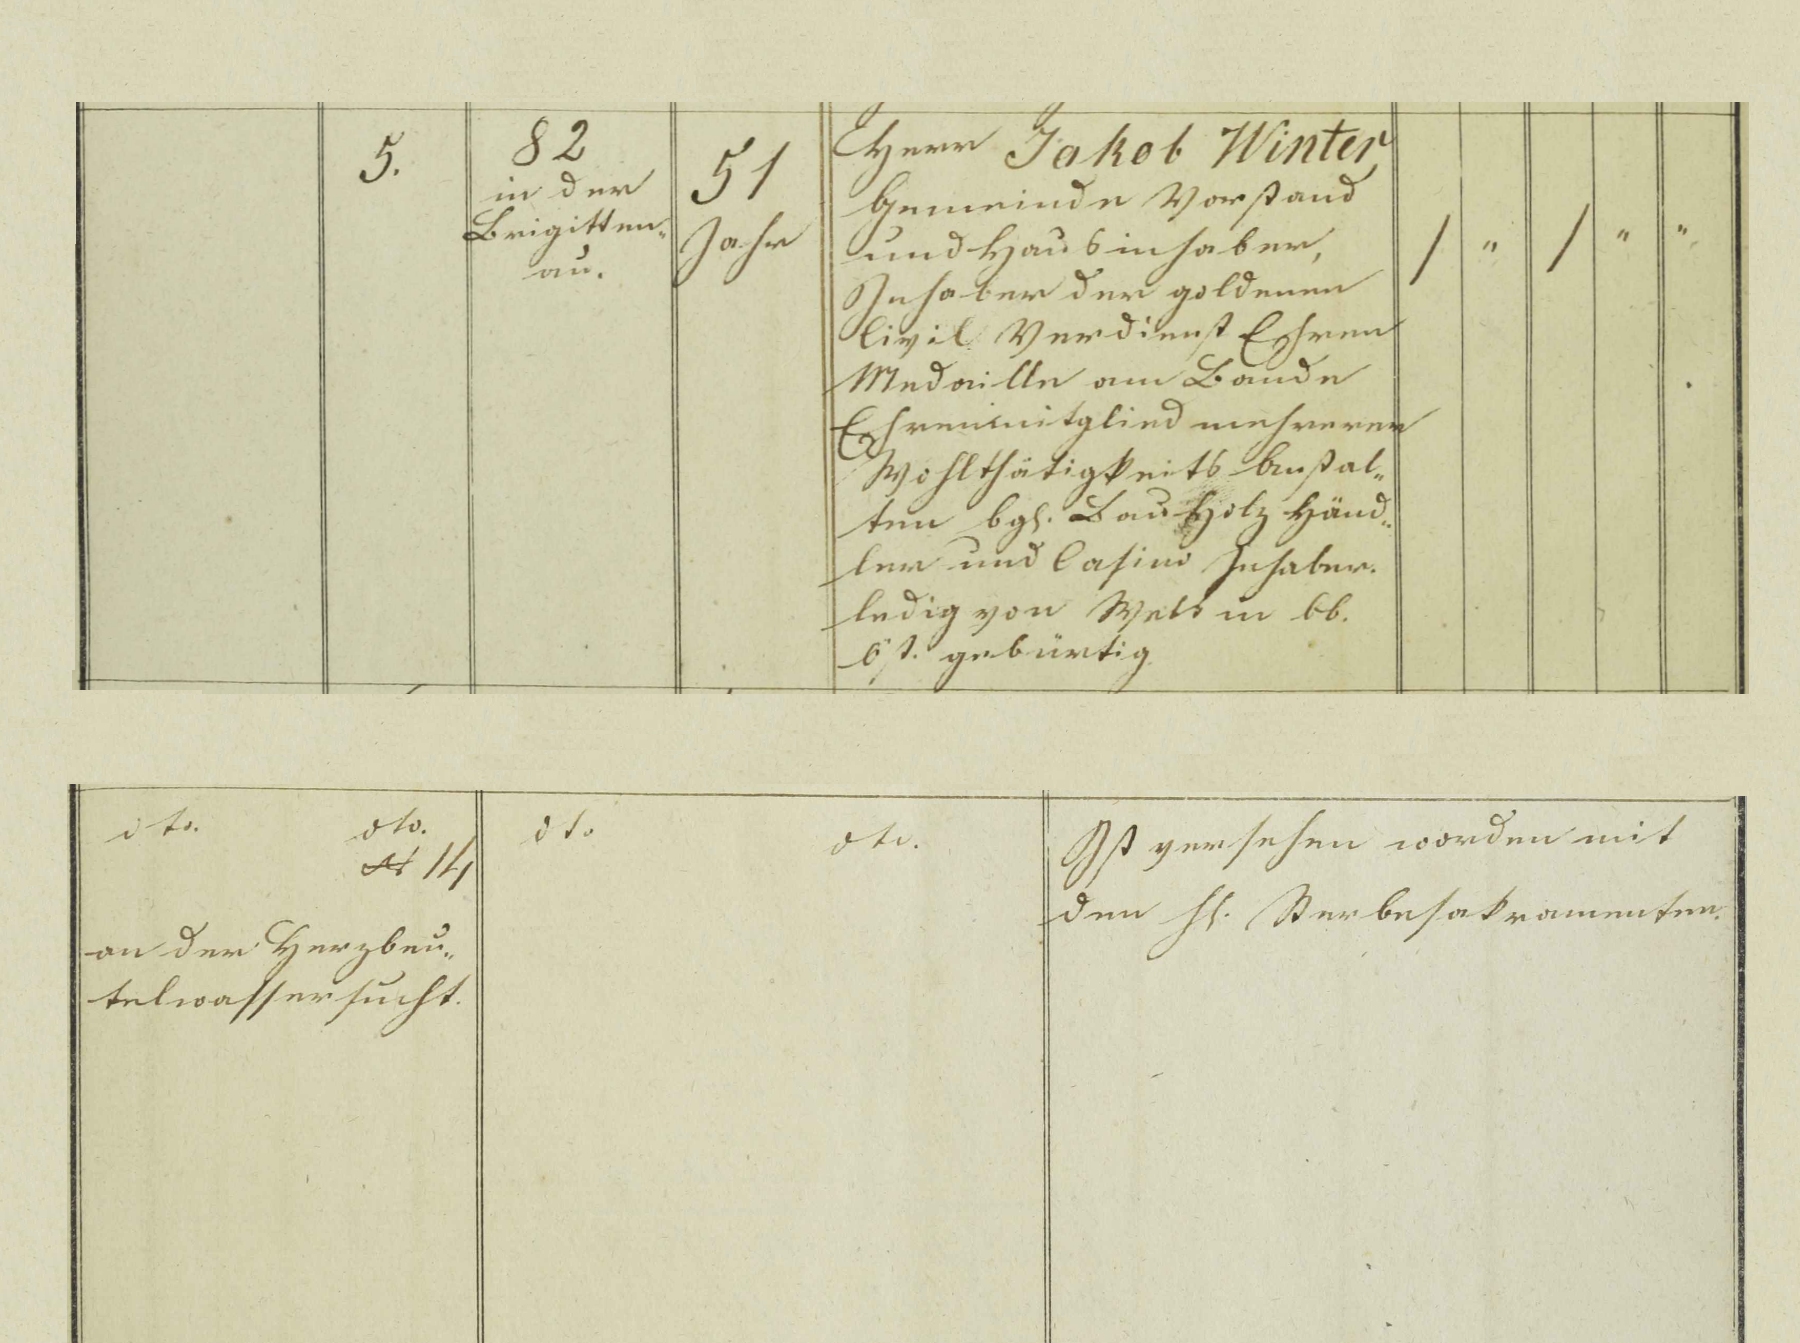 5.
82
in der
Brigitten-
au.
51
Jahr
Herr Jakob Winter
Gemeinde Vorstand
und Hausinhaber,
Inhaber der goldenen
Civil Verdienst Ehren
Medaille am Bande
Ehrenmitglied mehrerer
Wohlthätigkeits Anstal-
ten bgl. Bau Holz Händ-
ler und Casino Inhaber.
ledig von Wels in Ob.
Öst. gebürtig
/ " / " "
dto. dto.
N 14
an der Herzbeu-
telwassersucht.
dto dto.
Ist versehen worden mit
den hl. Sterbesakramenten.